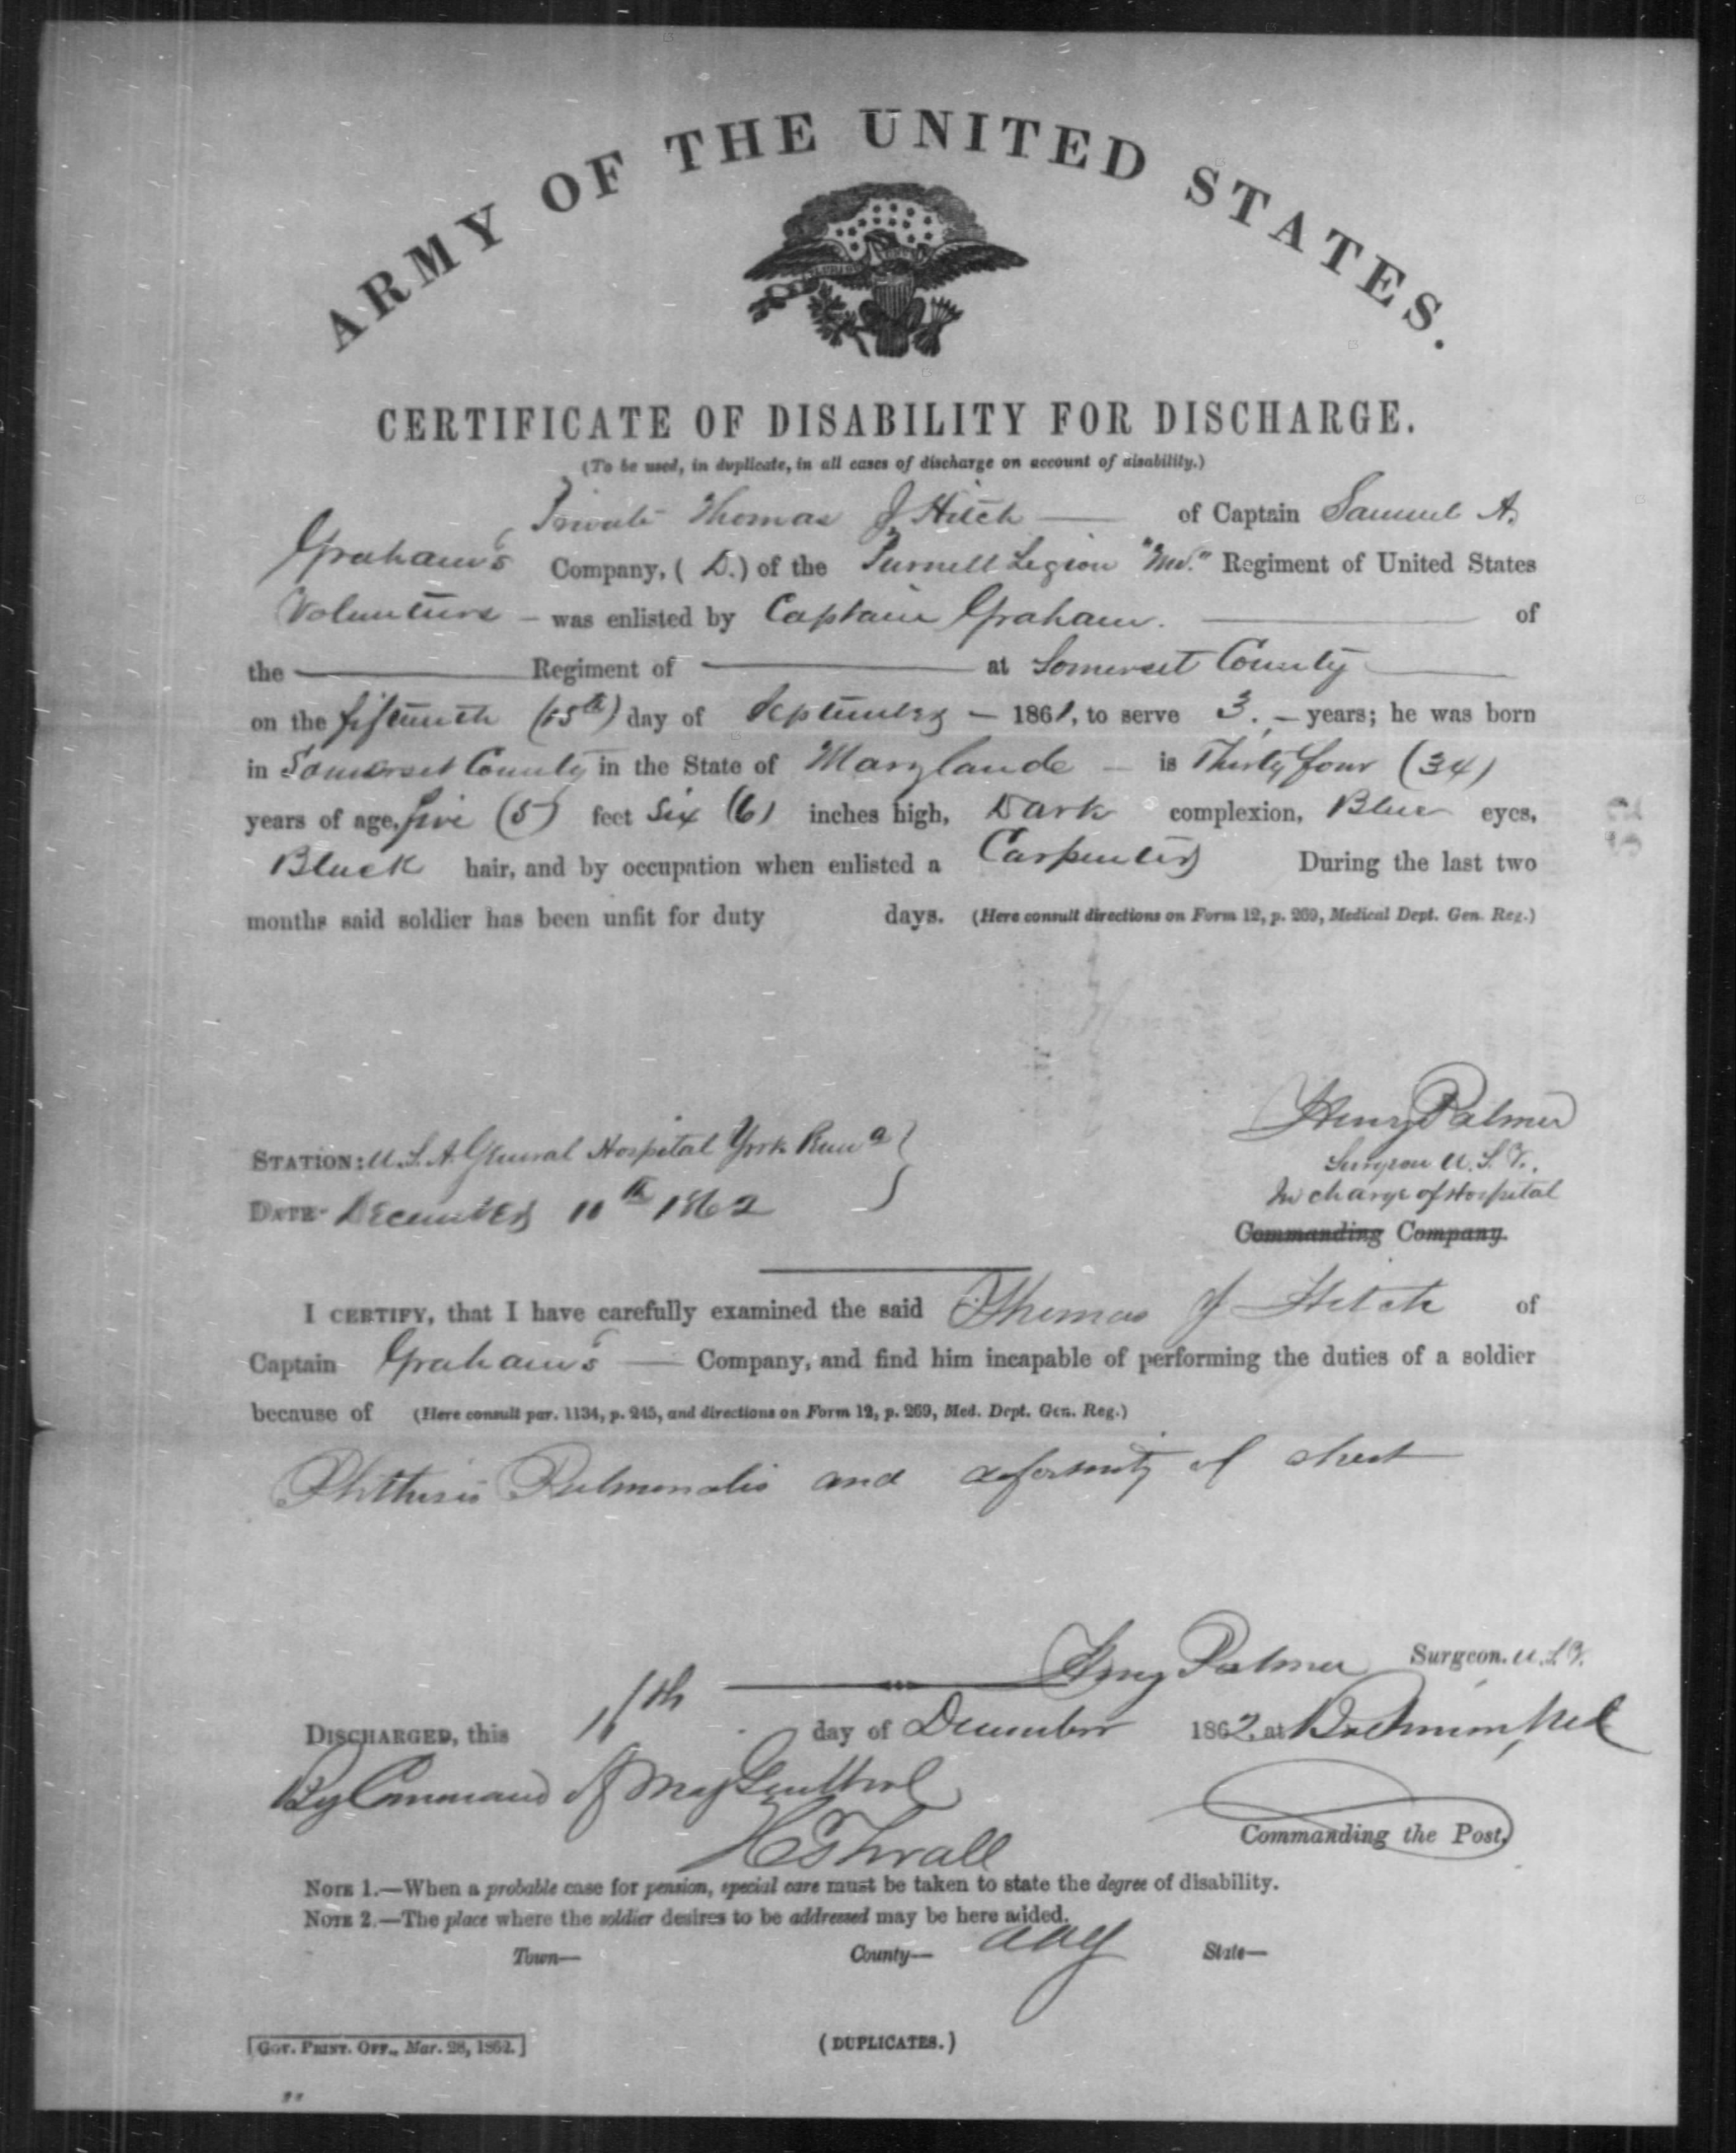 ARMY OF THE UNITED STATES.
CERTIFICATE OF DISABILITY FOR DISCHARGE.
(To be used, in duplicate, in all cases of discharge on account of disability.)
Private Thomas J. Hitch — of Captain Samuel A.
Graham's Company, ( D. ) of the Purnell Legion "Md." Regiment of United States
Volunteers – was enlisted by Captain Graham. — of
the — Regiment of — at Somerset County —
on the fifteenth (15th) day of September – 1861, to serve 3. – years; he was born
in Somerset County in the State of Maryland – is Thirty four (34)
years of age, five (5) feet Six (6) inches high, Dark complexion, Blue eyes,
Black hair, and by occupation when enlisted a Carpenter During the last two
months said soldier has been unfit for duty days. (Here consult directions on Form 12, p. 269, Medical Dept. Gen. Reg.)
Henry Palmer
STATION: U. S. A. General Hospital York
Surgeon U. S. V.
In charge of Hospital
DATE December 10th 1862
Commanding Company.
I CERTIFY, that I have carefully examined the said Thomas J Hitch of
Captain Graham's — Company, and find him incapable of performing the duties of a soldier
because of (Here consult par. 1134, p. 245, and directions on Form 12, p. 269, Med. Dept. Gen. Reg.)
Phthisis Pulmonalis and deformity of chest
Henry Palmer Surgeon. U. S. V.
DISCHARGED, this 11th day of December 1862. at
By Command of Maj
Commanding the Post,
NOTE 1.—When a probable case for pension, special care must be taken to state the degree of disability.
NOTE 2.—The place where the soldier desires to be addressed may be here added.
AAG
Town— County— State—
[GOV. PRINT. OFF., Mar. 28, 1862.]
(DUPLICATES.)